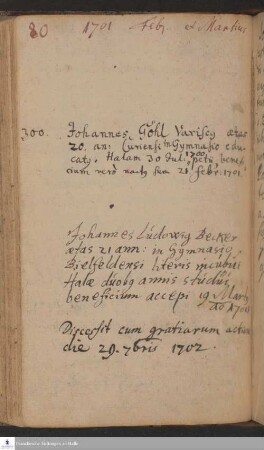 80 1701 Febr. et Martius
300. Johannes Göhl Variscus ætat.
20. an: Curiensi in Gymnasio edu-
catus. Halam 30 Jul: 1700 petii, benefi-
cium verò nactus sum 21 febr: 1701.
Johannes Ludowig Becker
ætas 21 ann: in Gymnasio
Bielfeldensi literis incubui
Halæ duobus annis studui,
beneficium accepi 19 Martij
Ao 1701
Discessit cum gratiarum actione
die 29. 7bris 1702.